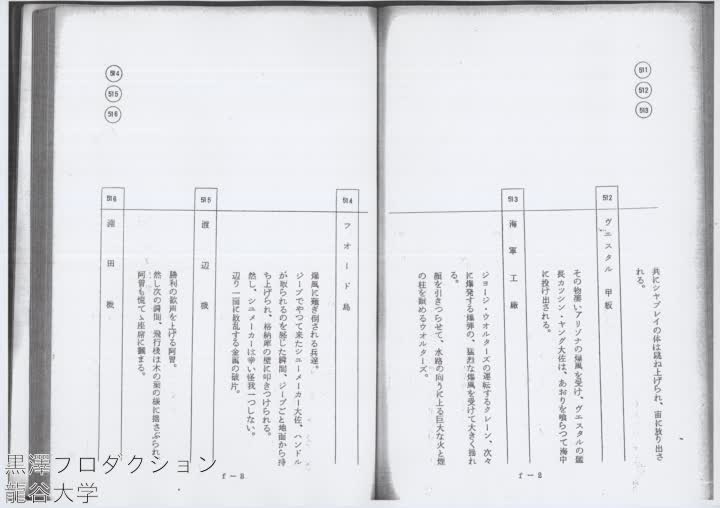 511
512
513
共にシヤプレイの体は跳ね上げられ、宙に放り出さ
れる。
512
ヴエスタル 甲板
その物凄いアリゾナの爆風を受け、ヴエスタルの艦
長カツシン・ヤング大佐は、あおりを喰らつて海中
に投げ出される。
513
海軍工廠
ジヨージ・ウオルターズの運転するクレーン、次々
に爆発する爆弾の、猛烈な爆風を受けて大きく揺れ
る。
顔を引きつらせて、水路の向うに上る巨大な火と煙
の柱を眺めるウオルターズ。
f-8
514
515
516
514
フオード島
爆風に薙ぎ倒される兵達。
ジープでやつて来たシユーメーカー大佐、ハンドル
が取られるのを感じた瞬間、ジープごと地面から持
ち上げられ、格納庫の壁に叩きつけられる。
然し、シユメーカーは幸い怪我一つしない。
辺り一面に散乱する金属の破片。
515
渡辺機
勝利の歓声を上げる阿曽。
然し次の瞬間、飛行機は木の葉の様に揺さぶられ
阿曽も慌てゝ座席に掴まる。
516
淵田機
f-8
黒澤プロダクション
龍谷大学